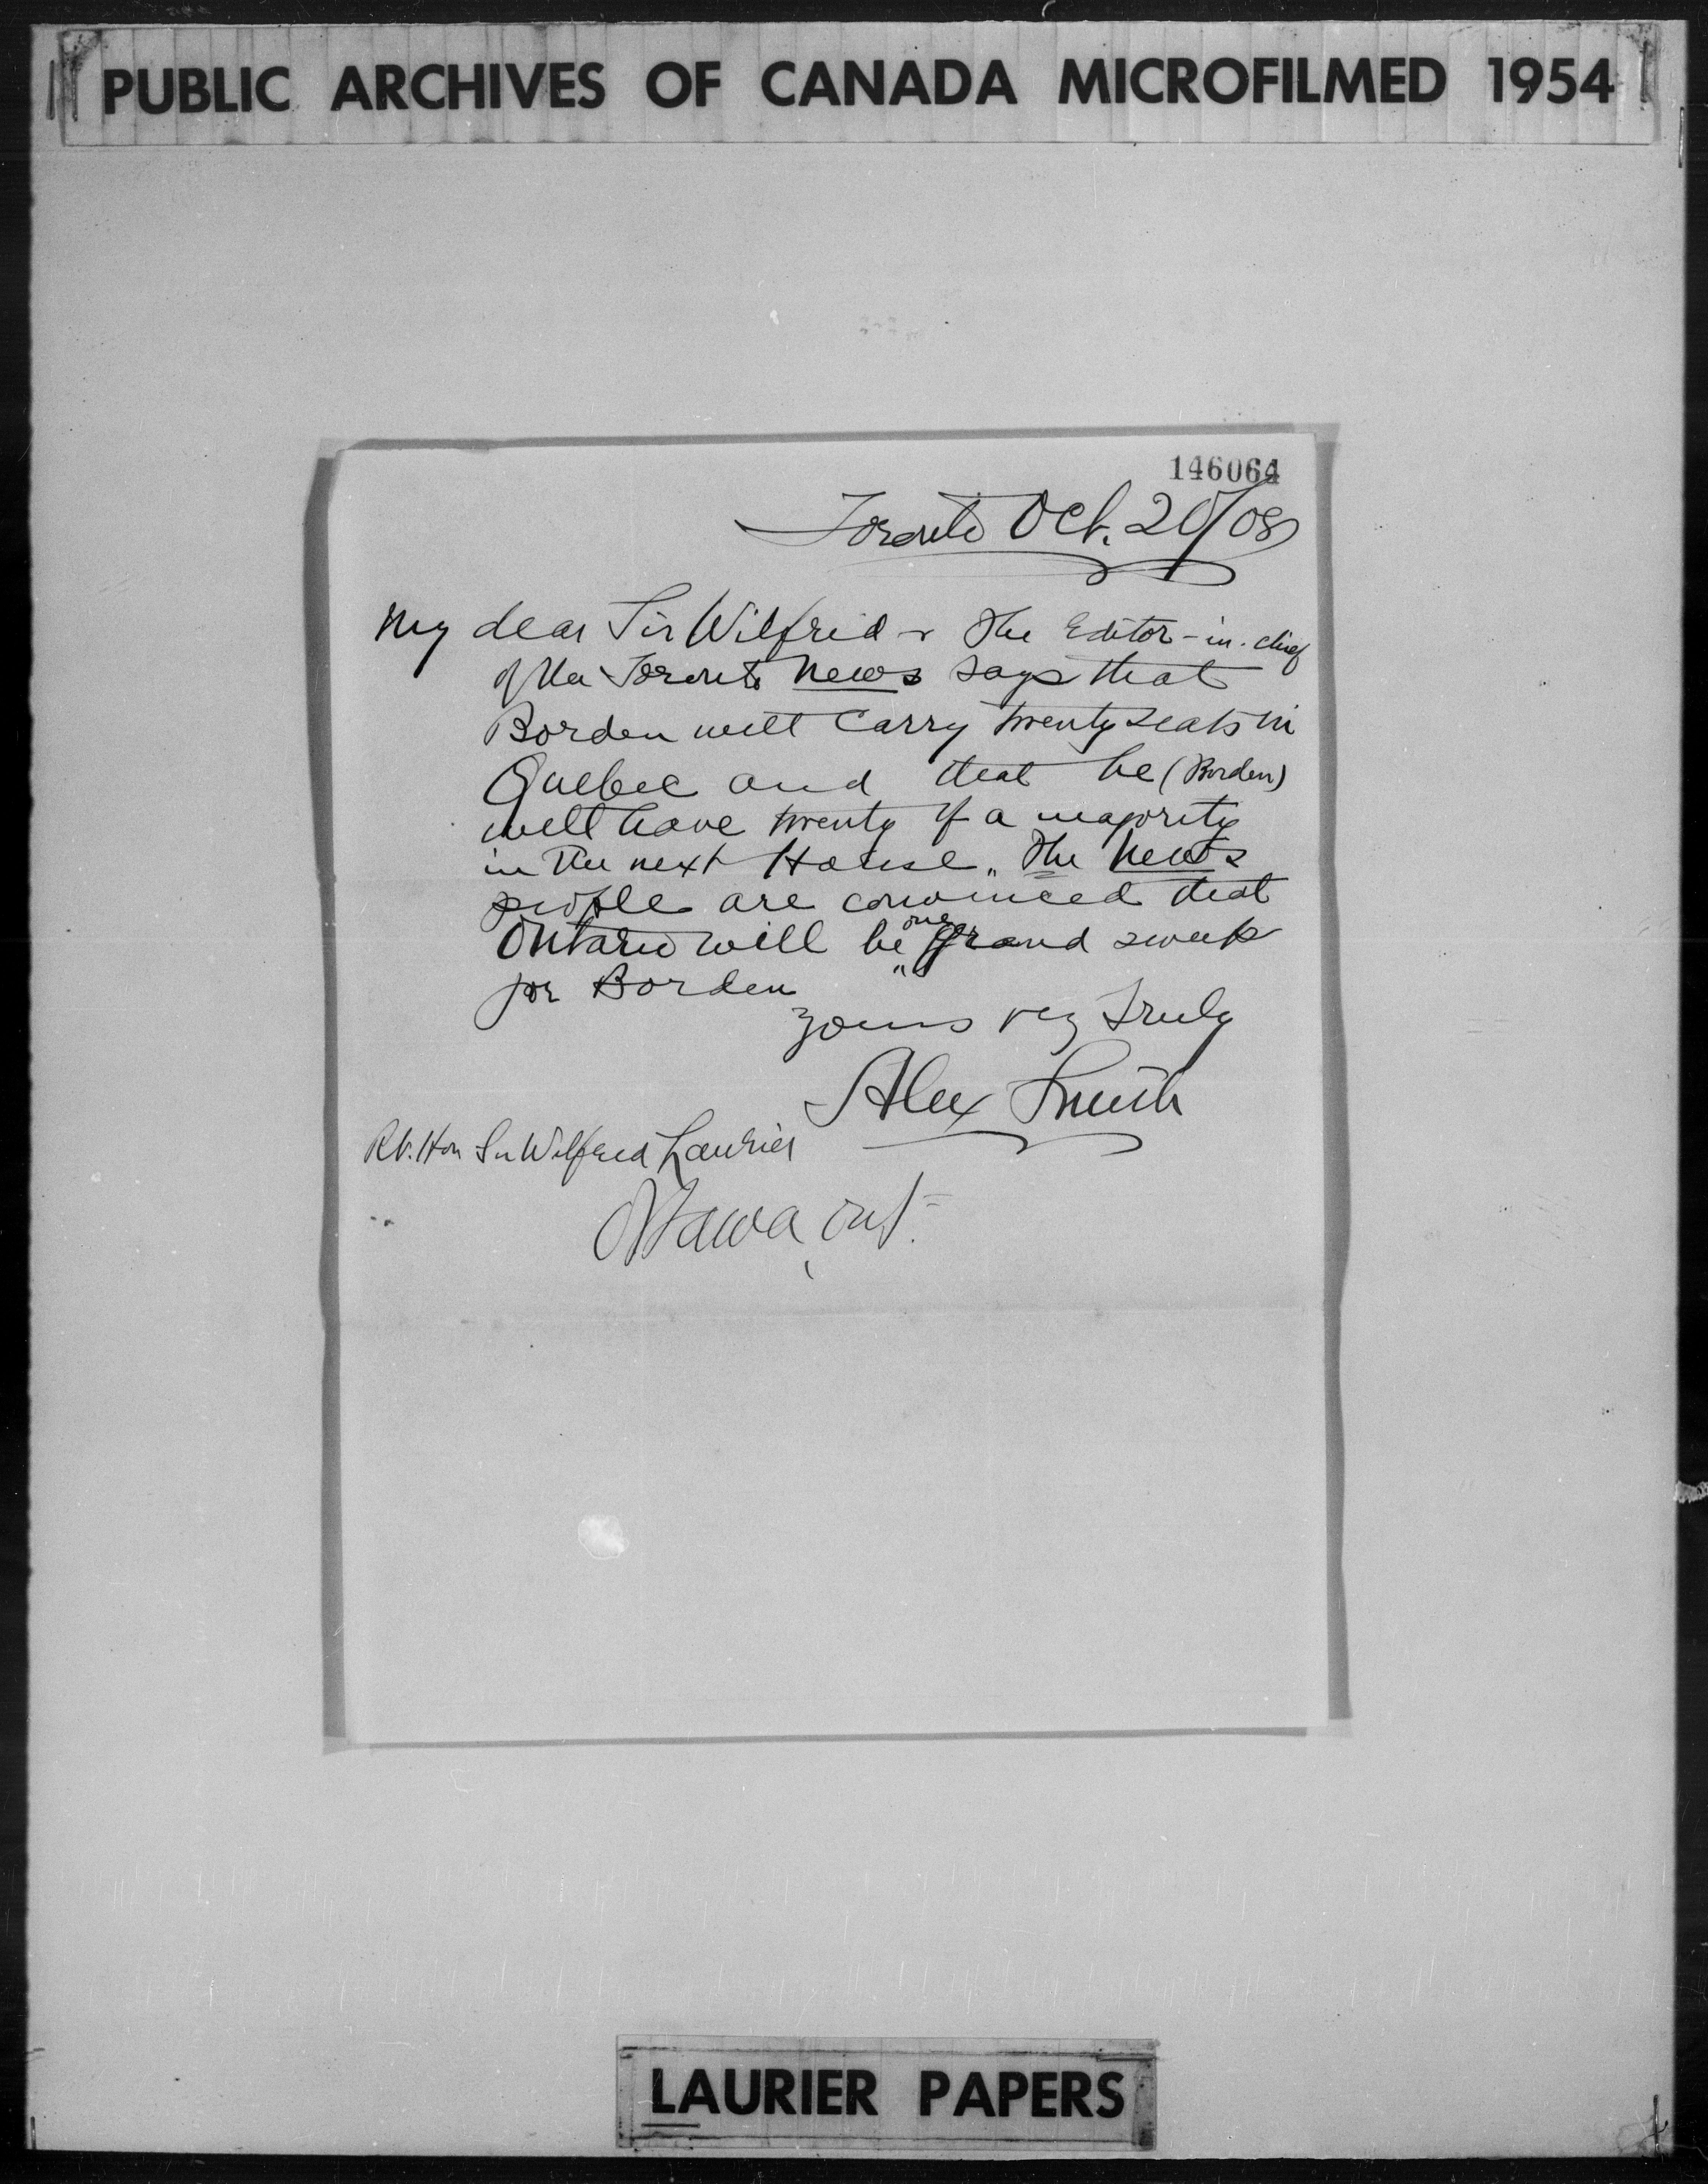 PUBLIC ARCHIVES OF CANADA MICROFILMED 1954
146064
Toronto Oct. 20/08
My dear Sir Wilfrid - The Editor-in-chief
of the Toronto News says that
Borden will carry twenty seats in
Quebec and that he (Borden)
will have twenty of a majority
in the next House. The News
people are convinced that
Ontario will be one grand sweep
for Borden
Yours very truly
Alex Smith
Rt. Hon Sir Wilfrid Laurier
Ottawa, Ont.
LAURIER PAPERS